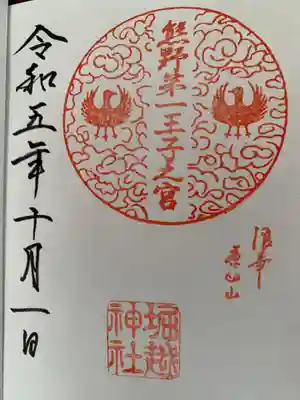 熊野第一王子之宮
堀越
神社
令和五年十月一日